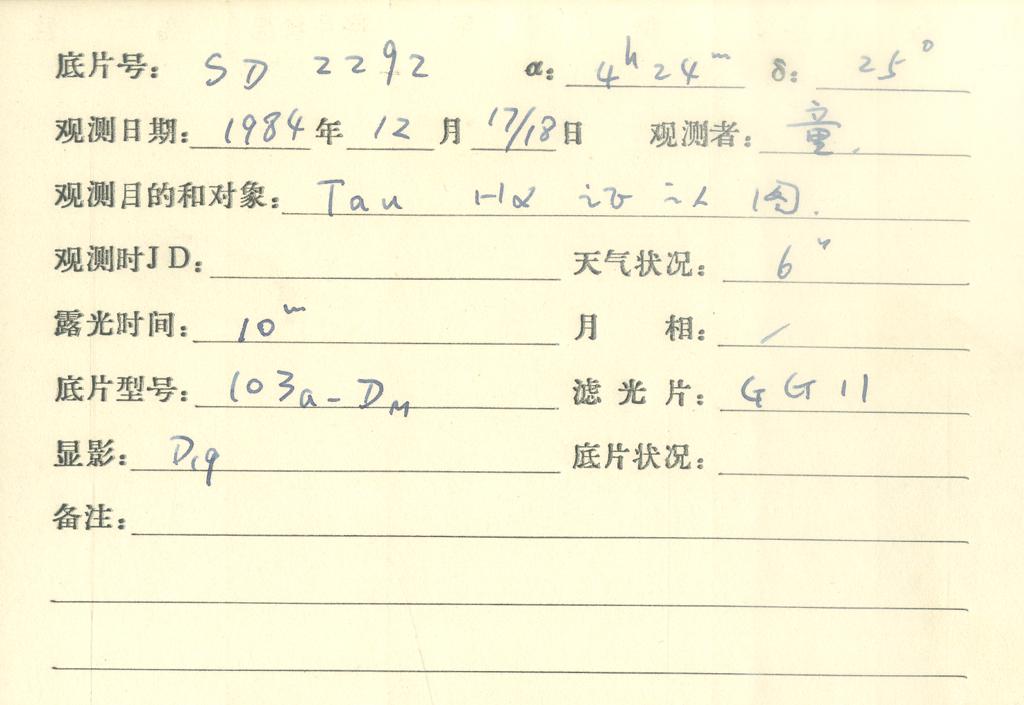 底片号: SD 2292 α: 4ʰ24ᵐ δ: 25°
观测日期: 1984年 12月 17/18日 观测者: 童
观测目的和对象: Tau Hα 证认图.
观测时JD: 天气状况: 6
露光时间: 10ᵐ 月 相: /
底片型号: 103a-D 滤光片: GG11
显影: D19 底片状况:
备注: